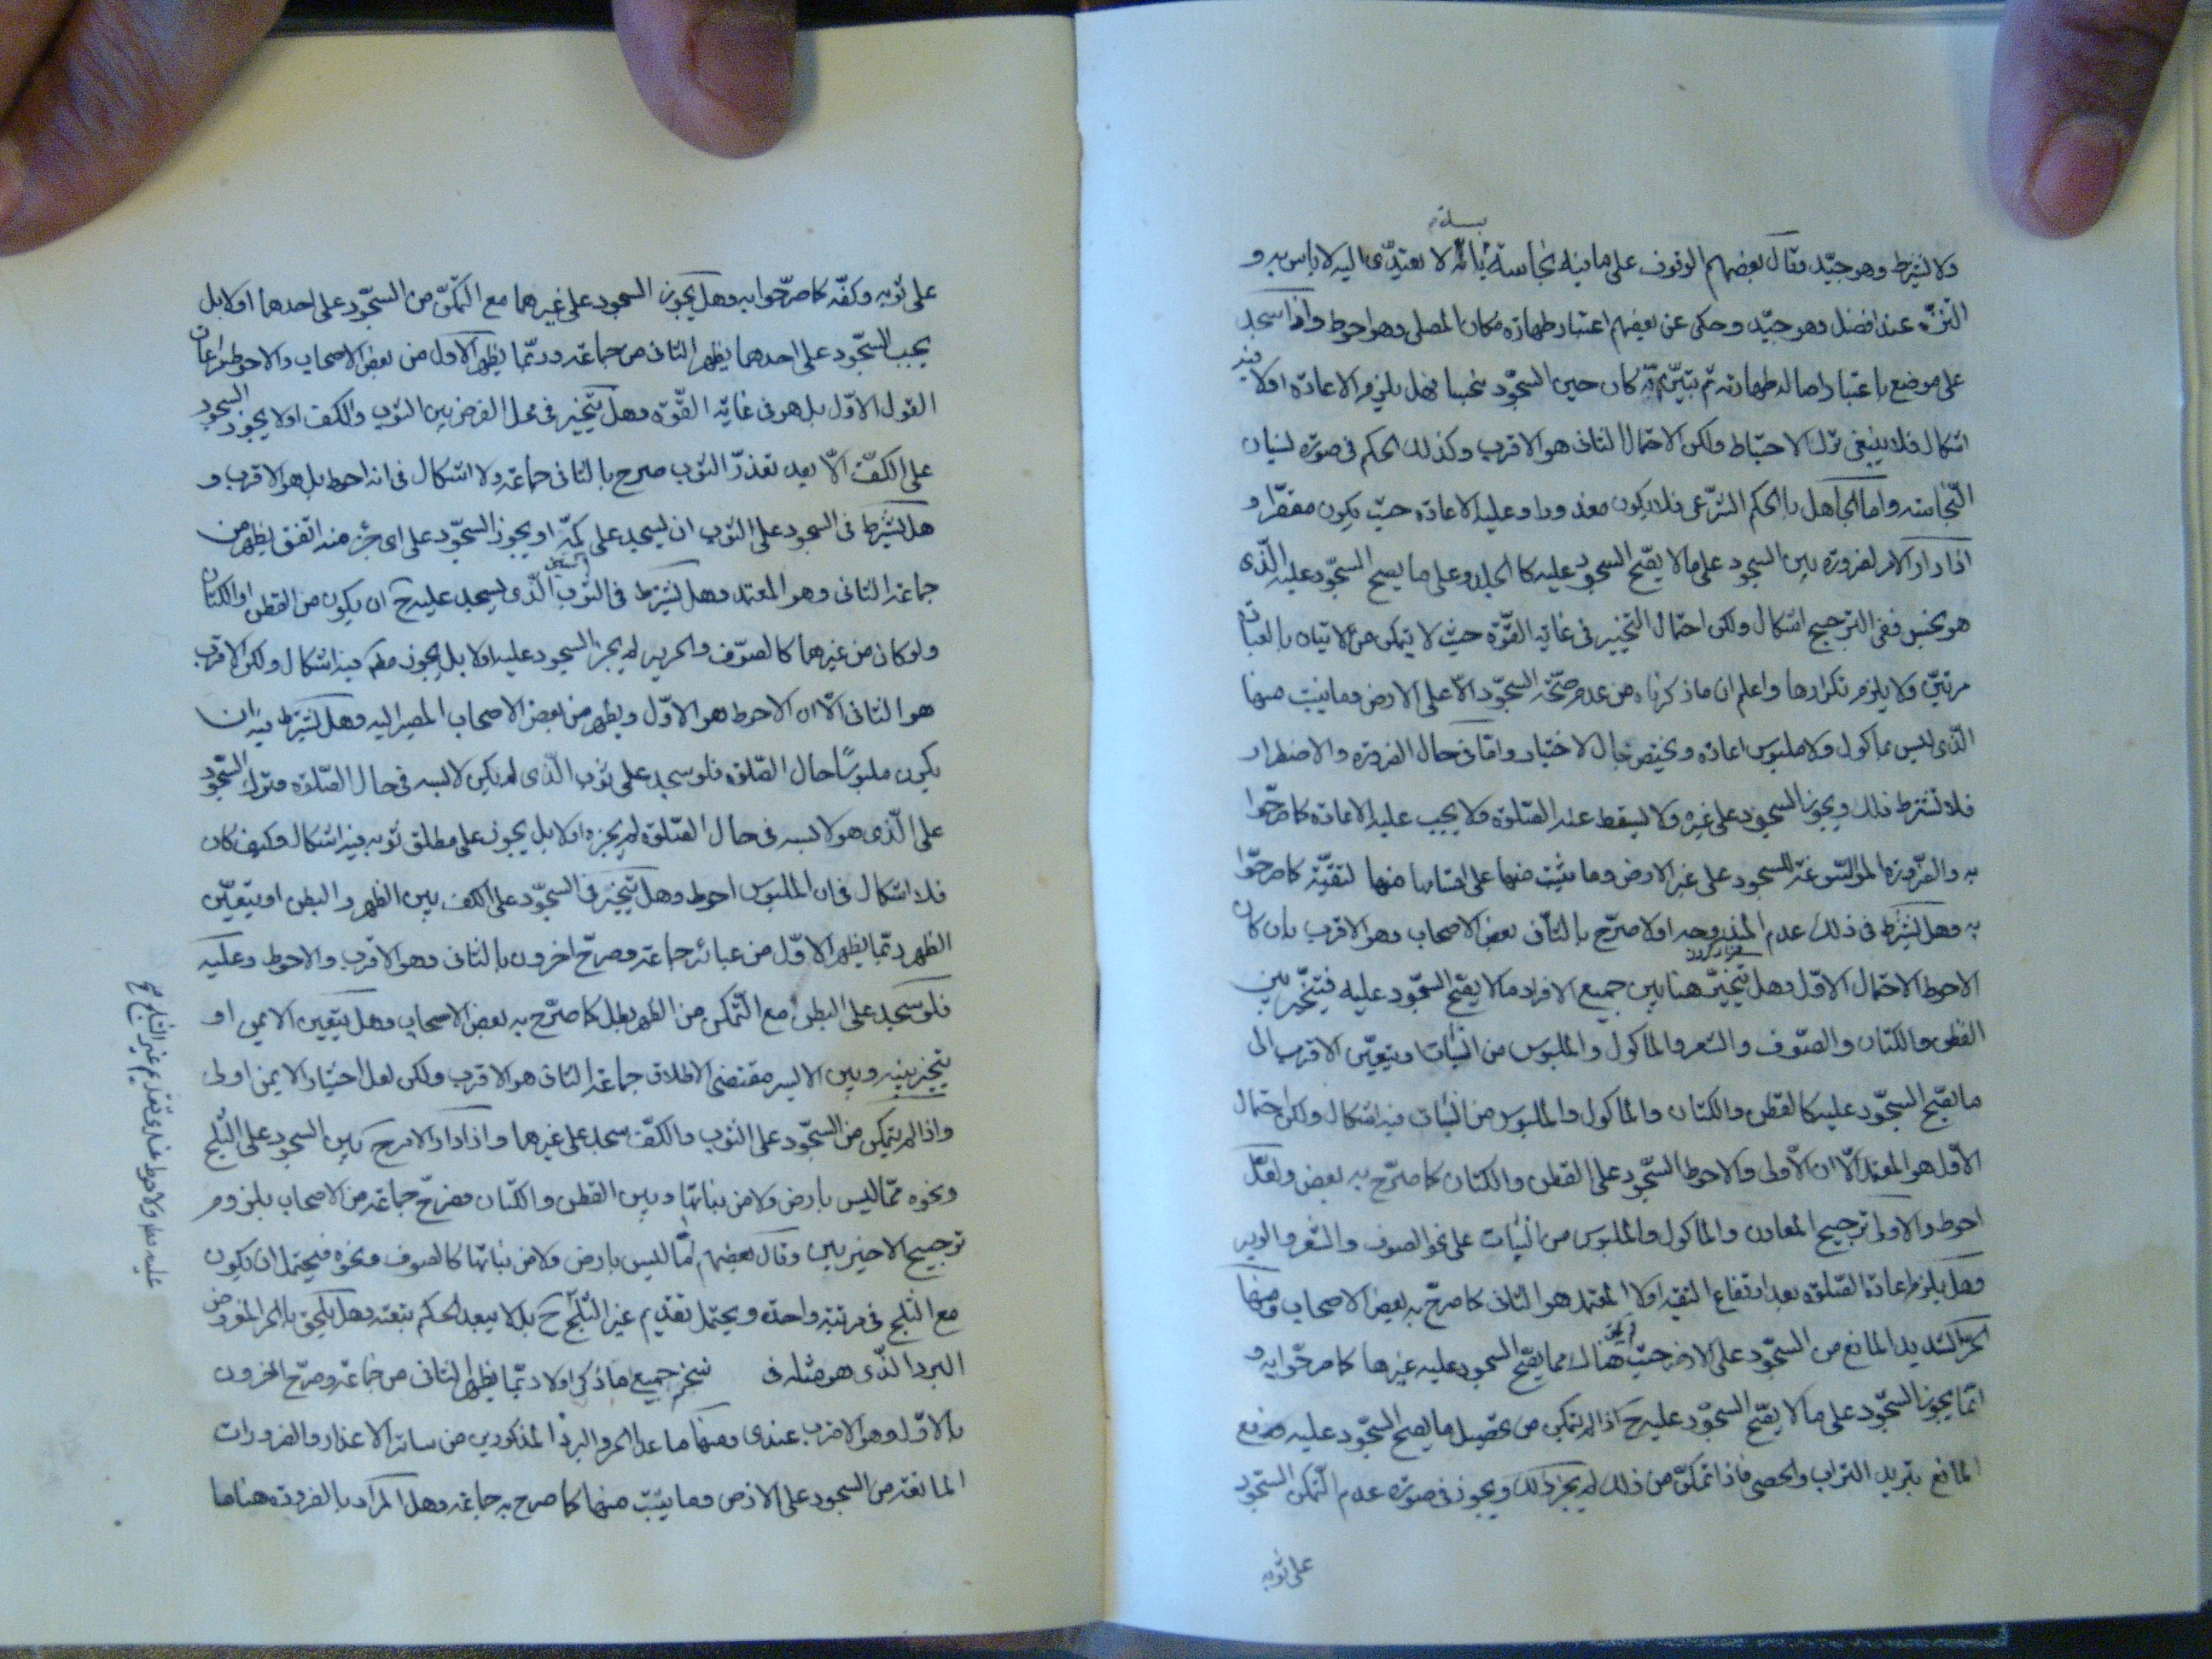 ولا يشترط وهو جيّد وقال بعضهم الوقوف على ما فيه نجاسة يابسة لا تعتدى اليه لا باس به و
التنزّه عنه افضل وهو جيّد وحكى عن بعضهم اعتبار طهارة مكان المصلى وهو احوط واذا سجد
على موضع باعتبار اصالة طهارته ثم تبيّن انّه كان حين السجّود نجسا فهل يلزم الاعادة اولا فيه
اشكال فلا ينبغى ترك الاحتياط ولكن الاحتمال الثانى هو الاقرب وكذلك الحكم فى صورة نسيان
النّجاسة واما الجاهل بالحكم الشّرعى فلا يكون معذورا وعليه الاعادة حيث يكون مقصّرا و
اذا دار الامر لضرورة بين السجود على ما لا يصّح السجود عليه كالجلد وعلى ما يصح السجّود عليه الّذى
هو نجس ففى الترجيح اشكال ولكن احتمال التخيير فى غاية القّوة حيث لا يتمكن من الاتيان بالعبادة
مرتيّن ولا يلزم تكرارها واعلم ان ما ذكرناه من عدم صحّة السجّود الّا على الارض وما ينبت منها
الّذى ليس بماكول ولا ملبوس عادة ويختص بحال الاختيار وامّا فى حال الضرورة والاضطرار
فلا تشترط ذلك ويجوز السجود على غيره ولا يسقط عنه الصّلوة ولا يجب عليه الاعادة كما صرّحوا
به والضّرورة المسّوغة للسجود على غير الارض وما ينبت منها على اقسام منها التقيّة كما صرحّوا
به وهل يشترط فى ذلك عدم المندوحة اولا صرّح بالثّانى بعض الاصحاب وهو الاقرب وان كان
الاحوط الاحتمال الاوّل وهل يتخيّر هنا بين جميع الافراد ما لا يصّح السجّود عليه فيتخّير بين
القطن والكتان والصّوف والشعر والماكول والملبوس من النّبات او يتعيّن الاقرب الى
ما يصّح السجّود عليه كالقطن والكتان والماكول والملبوس من النّبات فيه اشكال ولكن احتمال
الاوّل هو المعتمد الّا ان الاولى والاحوط السجّود على القطن والكتان كما صرّح به بعض ولعّل
احوط والاولى ترجيح المعادن والماكول والملبوس من النّبات على نحو الصوف والشّعر والوبر
وهل يلزم اعادة الصّلوة بعد ارتفاع التقيه اولا المعتمد هو الثانى كما صرّح به بعض الاصحاب ومنها
الحرّ الشديد المانع من السجّود على الارض حيث لم يكن هناك مما يصّح السجود عليه غيرها كما صرحّوا به و
انّما يجوز السجّود على ما لا يصّح السجّود عليه ح اذا لم يتمكن من تحصيل ما يصح السجّود عليه ورفع
المانع بتبريد التراب والحصى فاذا تمكنّ من ذلك لم يجز ذلك ويجوز فى صورة عدم التّمكن السّجود
على ثوبه
على ثوبه وكفّه كما صرّحوا به وهل يجوز السجود على غيرهما مع التمكنّ من السجّود على احدهما اولا بل
يجب السجّود على احدهما يظهر الثانى من جماعة وربّما يظهر الاول من بعض الاصحاب والاحوط مراعات
القول الاوّل بل هو فى غاية القّوة وهل يتخير فى محل الفرض بين الثوب والكف اولا يجوز السجود
على الكفّ الّا بعد تعذرّ الثوب صرح بالثانى جماعة ولا اشكال فى انه احوط بل هو الاقرب و
هل يشترط فى السجود على الثوب ان يسجد على كمّه او يجوز السجّود على اى جزء منه اتّفق يظهر من
جماعة الثانى وهو المعتمد وهل يشترط فى الثوب الّذى يسجد عليه ح ان يكون من القطن او الكتان
ولو كان من غيرهما كالصوّف والحرير لم يجز السجود عليه اولا بل يجوز مطم فيه اشكال ولكن الاقرب
هو الثانى الّا ان الاحوط هو الاوّل ويظهر من بعض الاصحاب المصير اليه وهل يشترط فيه ان
يكون ملبوسًا حال الصّلوة فلو سجد على ثوب الّذى لم يكن لابسه فى حال الصّلوة وترك السجّود
على الّذى هو لابسه فى حال الصّلوة لم يجزه اولا بل يجوز على مطلق ثوبه فيه اشكال وكيف كان
فلا اشكال فى ان الملبوس احوط وهل يتخيّر فى السجّود على الكف بين الظهر والبطن او يتعيّن
الظهر ربّما يظهر الاوّل من عبائر جماعة وصرّح اخرون بالثانى وهو الاقرب والاحوط وعليه
فلو سجد على البطن مع التّمكن من الظهر بطل كما صرّح به بعض الاصحاب وهل يتعين الايمن او
يتخير بينه وبين الايسر مقتضى الاطلاق جماعة الثانى هو الاقرب ولكن لعل اختيار الايمن اولى
واذا لم يتمكن من السجّود على الثوب والكفّ سجد على غيرهما واذا دار الامر ح بين السجود على الثلج
ونحوه ممّا ليس بارض ولا من نباتها وبين القطن والكتان فصّرح جماعة من الاصحاب بلزوم
ترجيح الاخيرين وقال بعضهم امّا ما ليس بارض ولا من نباتها كالصوف ونحوه فيحتمل ان يكون
مع الثلج فى مرتبة واحدة ويحتمل تقديم غير الثلج ح بل لا يبعد الحكم بتعينه وهل يلحق بالحر المفروض
البرد الّذى هو مثله فى جميع ما ذكر اولا ربّما يظهر الثانى من جماعة وصرّح اخرون
بالاوّل وهو الاقرب عندى ومنها ما عدا الحر والبرد المذكورين من سائر الاعذار والضرورات
المانعة من السجود على الارض وما ينبت منها كما صرح به جماعة وهل المراد بالضرورة هنا ما